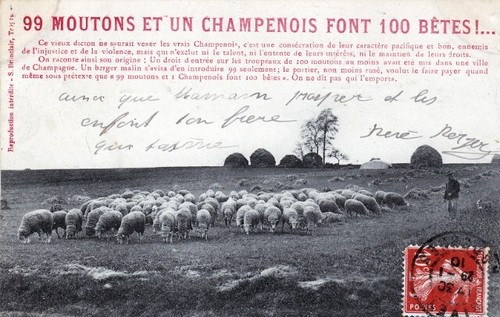 99 MOUTONS ET UN CHAMPENOIS FONT 100 BÊTES!...
Ce vieux dicton ne saurait vexer les vrais Champenois, c'est une consécration de leur caractère pacifique et bon, ennemis
de l'injustice et de la violence, mais qui n'exclut ni le talent, ni l'entente de leurs intérêts, ni le maintien de leurs droits.
On raconte ainsi son origine : Un droit d'entrée sur les troupeaux de 100 moutons au moins avait été mis dans une ville
de Champagne. Un berger malin s'avisa d'en introduire 99 seulement; le portier, non moins rusé, voulut le faire payer quand
même sous prétexte que « 99 moutons et 1 Champenois font 100 bêtes ». On ne dit pas qui l'emporta.
Reproduction interdite - S.
que Maman et les
enfant
René
POSTES
10